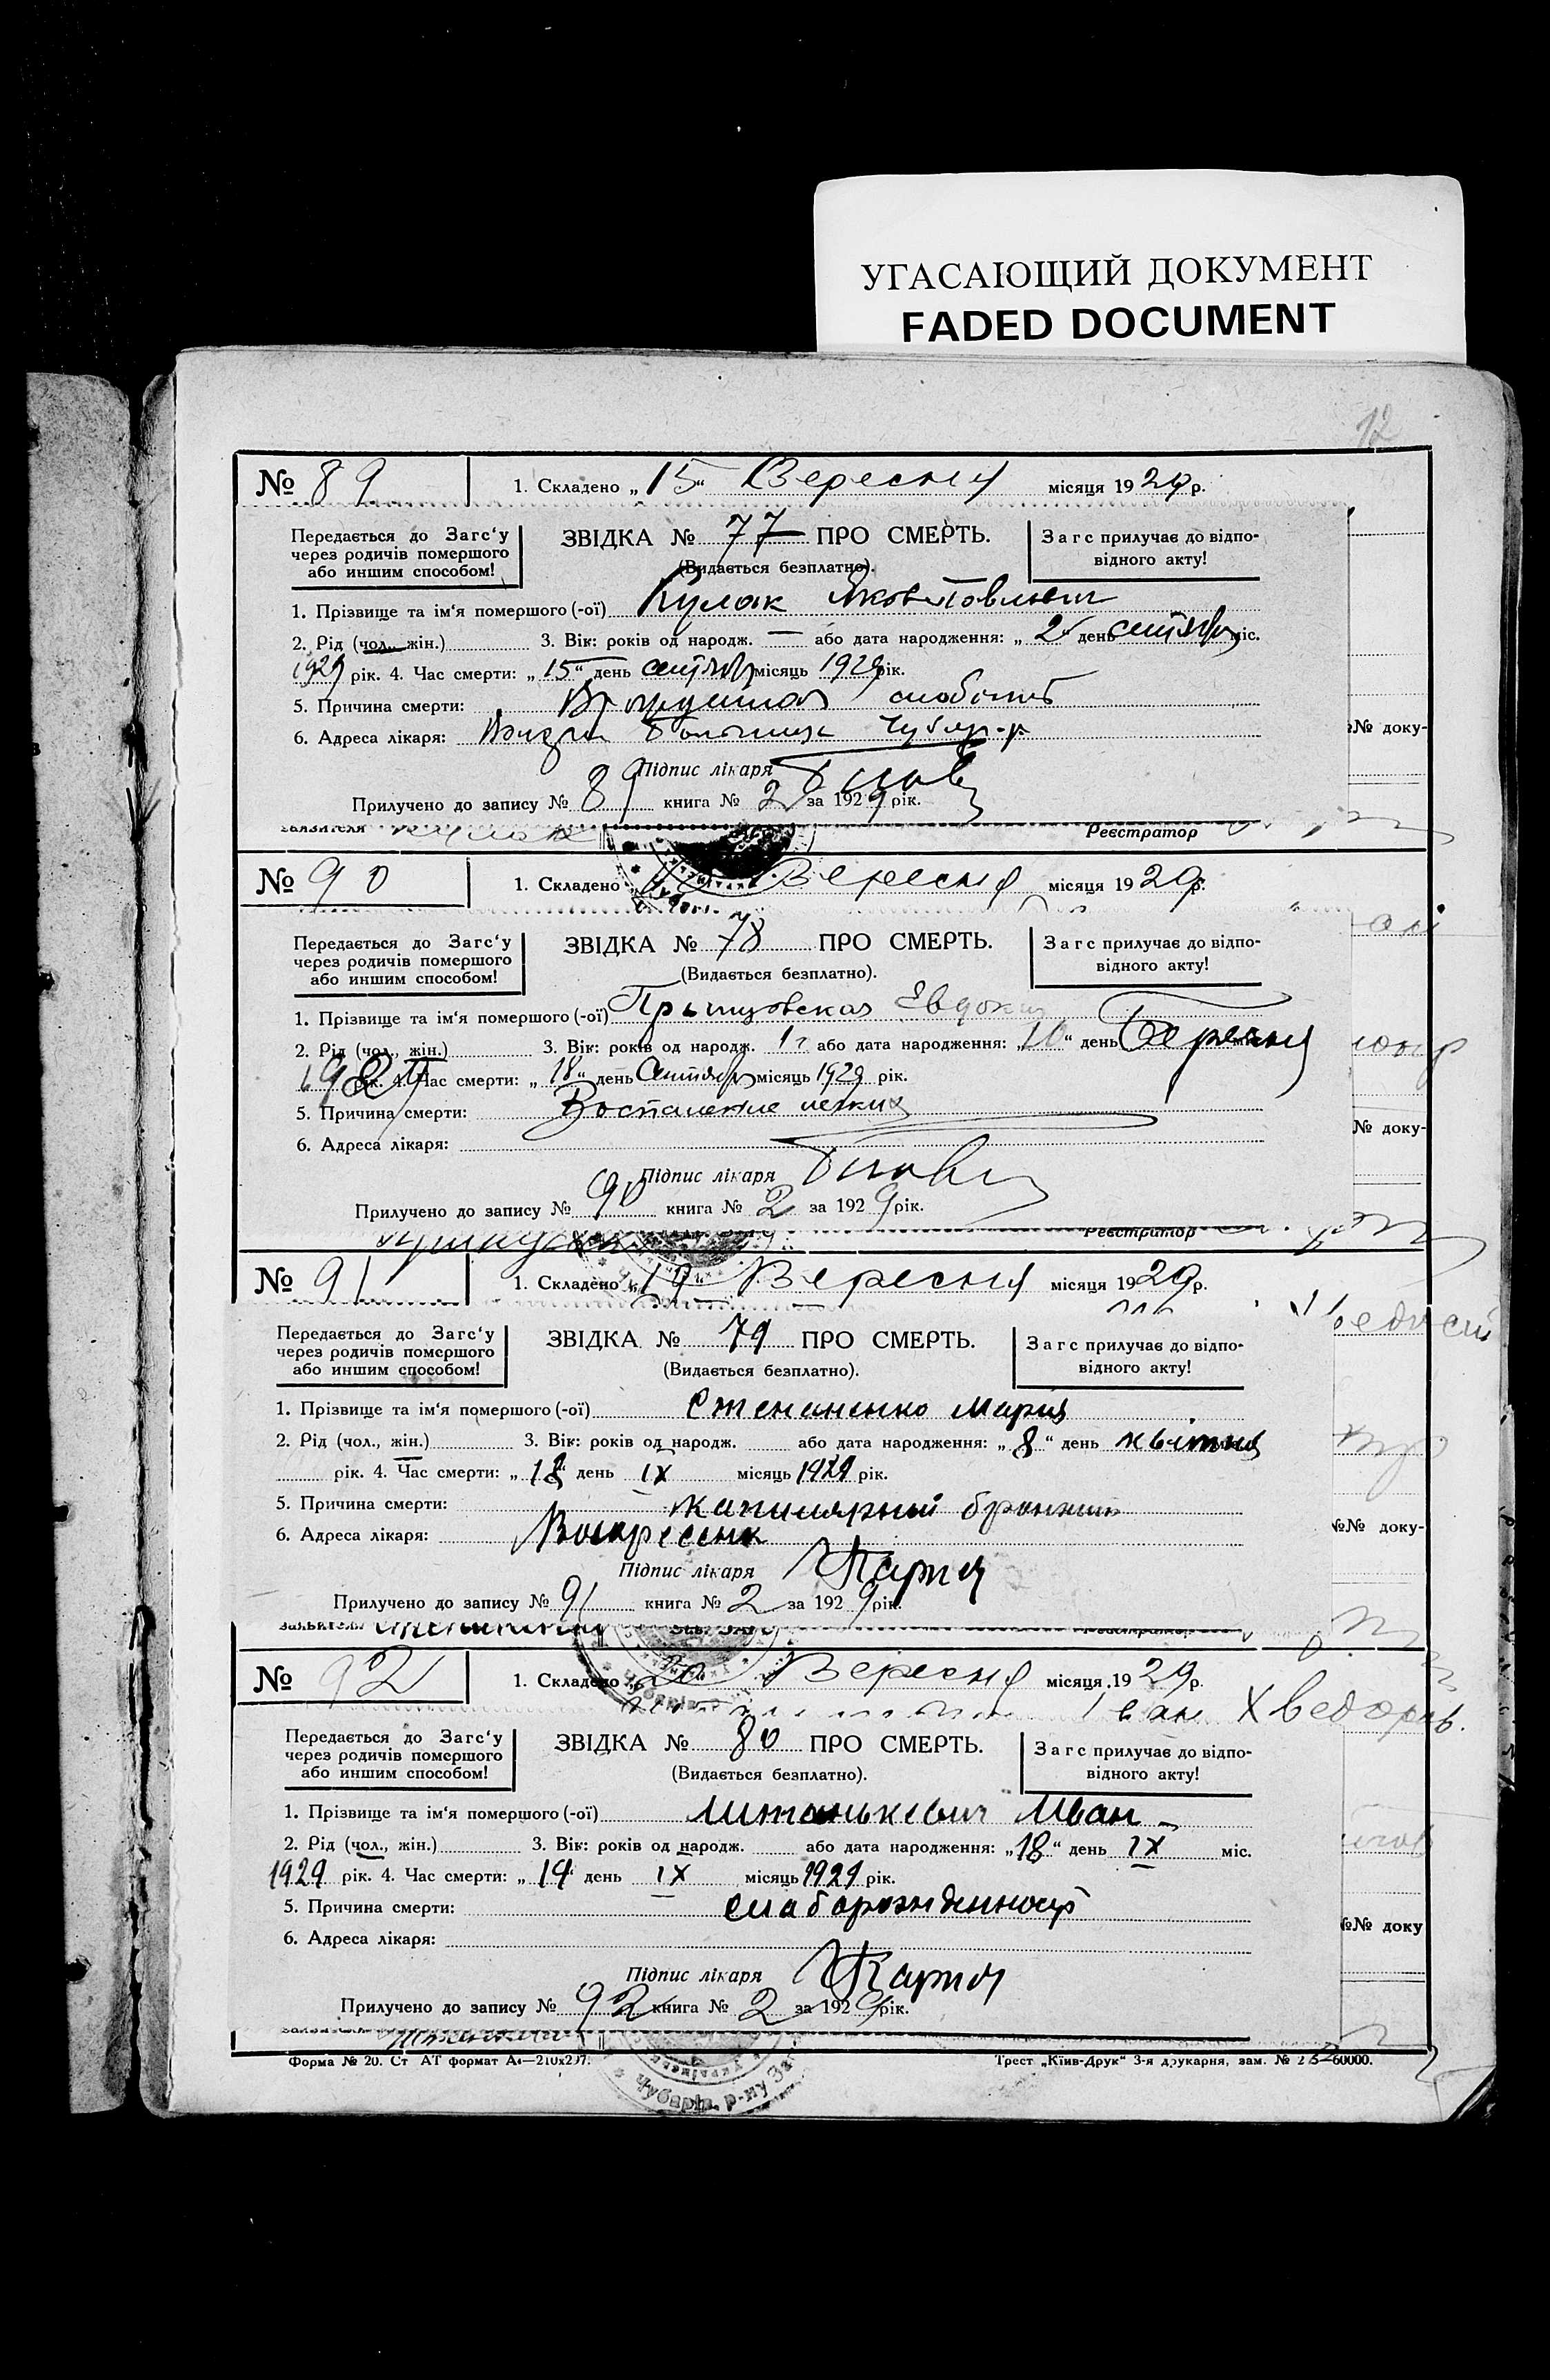 УГАСАЮЩИЙ ДОКУМЕНТ
FADED DOCUMENT
12
№ 89 1. Складено „15“ Вересня місяця 1929 р.
Передається до Загс‘у через родичів помершого або иншим способом!
ЗВІДКА № 77 ПРО СМЕРТЬ.
(Видається безплатно).
Загс прилучає до відпо-
відного акту!
1. Прізвище та ім‘я помершого (-ої) Кулак Яков Павлович
2. Рід (чол., жін.) 3. Вік: років од народж. — або дата народження: „2“ день сентября міс.
1929 рік. 4. Час смерти: „15“ день сентябр місяць 1929 рік.
5. Причина смерти: Врожденная слабость
6. Адреса лікаря:
№№ доку-
Підпис лікаря
Прилучено до запису № 89 книга № 2 за 1929 рік.
заявителя Кулак Реєстратор
№ 90 1. Складено Вересня місяця 1929 р.
Передається до Загс‘у через родичів помершого або иншим способом!
ЗВІДКА № 78 ПРО СМЕРТЬ.
(Видається безплатно).
Загс прилучає до відпо-
відного акту!
1. Прізвище та ім‘я помершого (-ої) Евдокия
2. Рід (чол., жін.) 3. Вік: років од народж. 1 г або дата народження: „10“ день Березня
рік. 4. Час смерти: „18“ день Сентябр місяць 1929 рік.
5. Причина смерти: Воспаление легких
№ доку-
6. Адреса лікаря:
Підпис лікаря
Прилучено до запису № 90 книга № 2 за 1929 рік.
Реєстратор
№ 91 1. Складено „19“ Вересня місяця 1929 р.
Передається до Загс‘у через родичів помершого або иншим способом!
ЗВІДКА № 79 ПРО СМЕРТЬ.
(Видається безплатно).
Загс прилучає до відпо-
відного акту!
1. Прізвище та ім‘я помершого (-ої) Степаненко Мария
2. Рід (чол., жін.) 3. Вік: років од народж. або дата народження: „8“ день квітня
рік. 4. Час смерти: „18“ день IX місяць 1929 рік.
5. Причина смерти: капилярный бронхит
№№ доку-
6. Адреса лікаря: Воскресенк
Підпис лікаря
Прилучено до запису № 91 книга № 2 за 1929 рік.
заявителя Реєстратор
№ 92 1. Складено „20“ Вересня місяця 1929 р.
Іван Хведоров.
Передається до Загс‘у через родичів помершого або иншим способом!
ЗВІДКА № 80 ПРО СМЕРТЬ.
(Видається безплатно).
Загс прилучає до відпо-
відного акту!
1. Прізвище та ім‘я помершого (-ої) Литанькевич Иван
2. Рід (чол., жін.) 3. Вік: років од народж. або дата народження: „18“ день IX міс.
1929 рік. 4. Час смерти: „19“ день IX місяць 1929 рік.
5. Причина смерти: слаборожденность
№№ доку
6. Адреса лікаря:
Підпис лікаря
Прилучено до запису № 92 книга № 2 за 1929 рік.
Форма № 20. Ст АТ формат А4—210х297. Трест „Київ-Друк“ 3-я друкарня, зам. № 60000.
Чубарів. р-ну